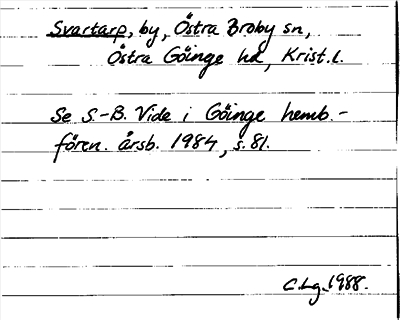 Svartarp, by, Östra Broby sn,
Östra Göinge hd, Krist. l.
Se S.-B. Vide i Göinge hemb.-
fören. årsb. 1984, s. 81.
C.Lg. 1988.